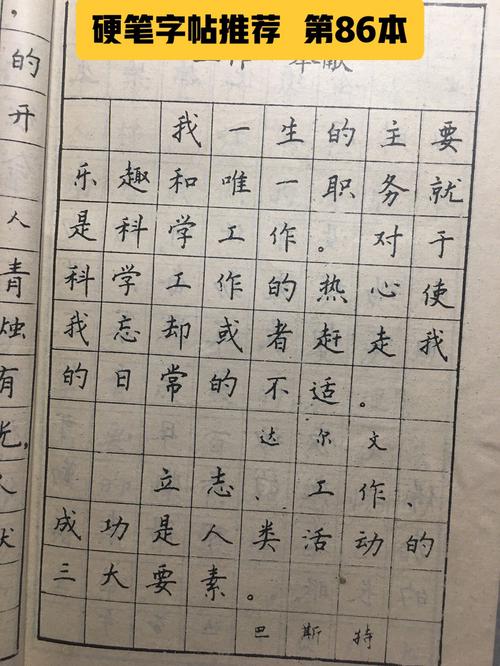 硬笔字帖推荐 第86本
我一生的主要
乐趣和唯一职务就
是科学工作。对于
科学工作的热心使
我忘却或者赶走我
的日常的不适。
达尔文
立志、工作、
成功是人类活动的
三大要素。
巴斯特
的
开
人
青
烛
有
光,